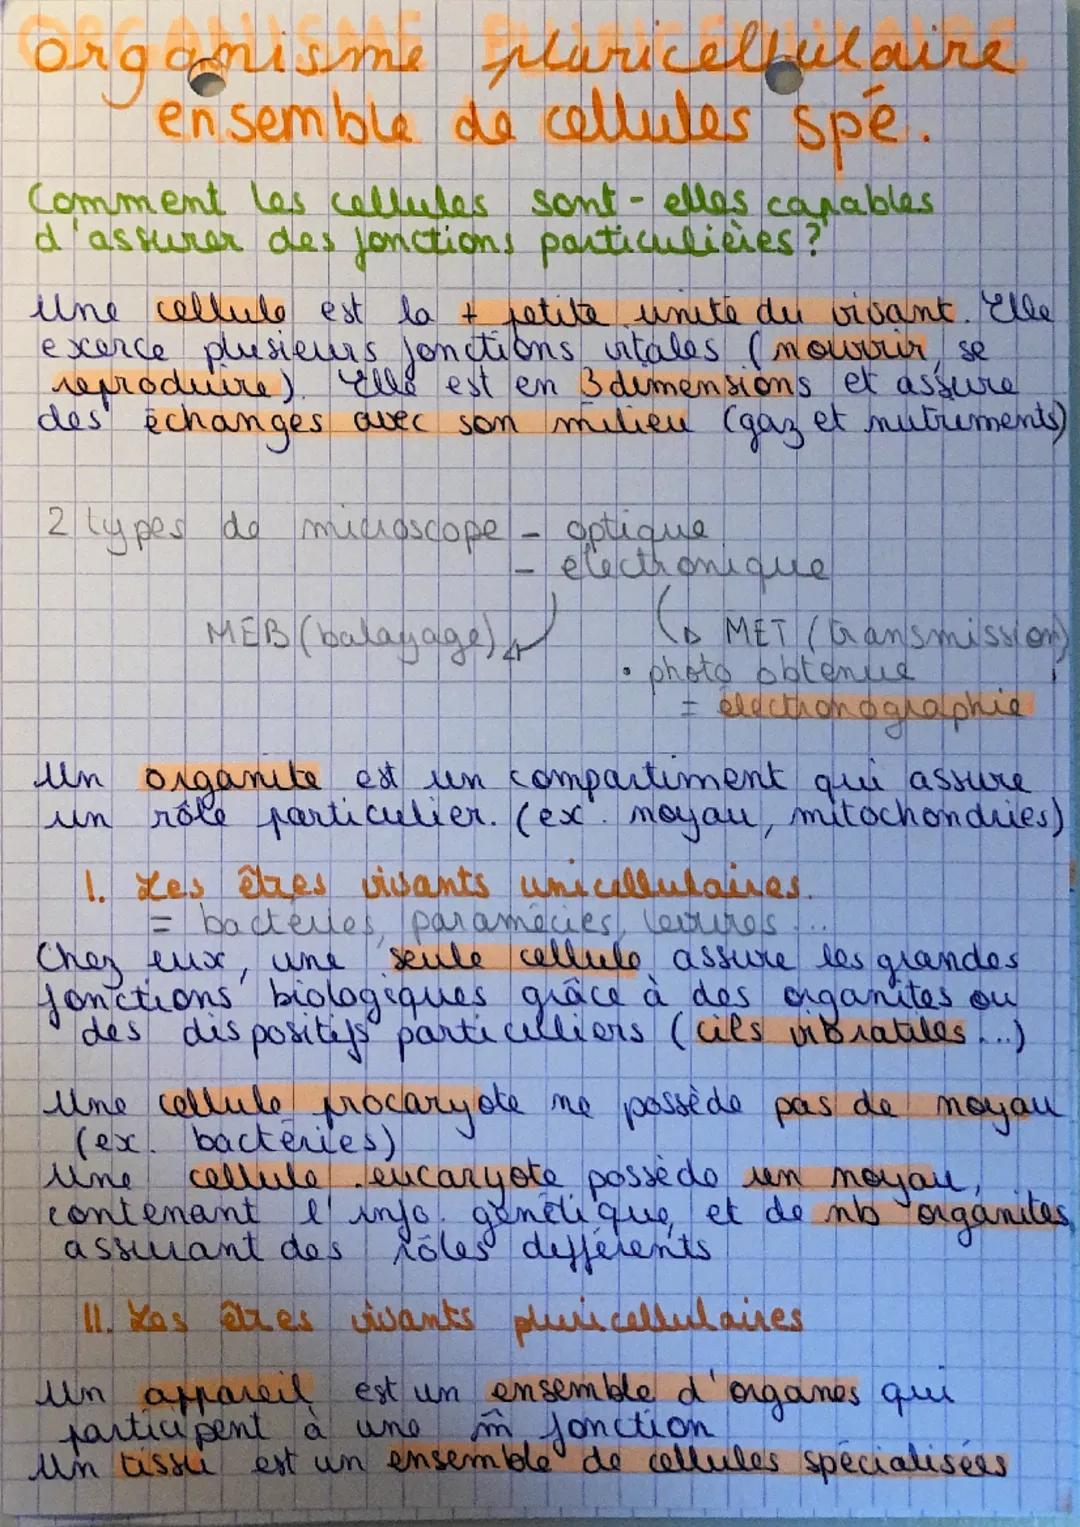 organisme pluricellulaire
ensemble de cellules spé.
Comment les cellules sont-elles capables
d'assurer des fonctions particulières ?
Une cellule est la + petite unité du vivant. Elle
exerce plusieurs fonctions vitales (nourrir, se
reproduire). Elle est en 3 dimensions et assure
des échanges avec son milieu (gaz et nutriments)
2 types de microscope - optique
- électronique
MEB (balayage)
MET (transmission)
• photo obtenue
= électronographie
Un organite est un compartiment qui assure
un rôle particulier. (ex. noyau, mitochondries)
I. Les êtres vivants unicellulaires.
= bactéries, paramécies, levures...
Chez eux, une seule cellule assure les grandes
fonctions biologiques grâce à des organites ou
des dispositifs particulliers (cils vibratiles...)
Une cellule procaryote ne possède pas de noyau
(ex. bactéries)
Une cellule eucaryote possède un noyau,
contenant l'info. génétique, et de nb organites,
assurant des rôles différents
II. Les êtres vivants pluricellulaires
Un appareil est un ensemble d'organes qui
participent à une m̂ fonction
Un tissu est un ensemble de cellules spécialisées